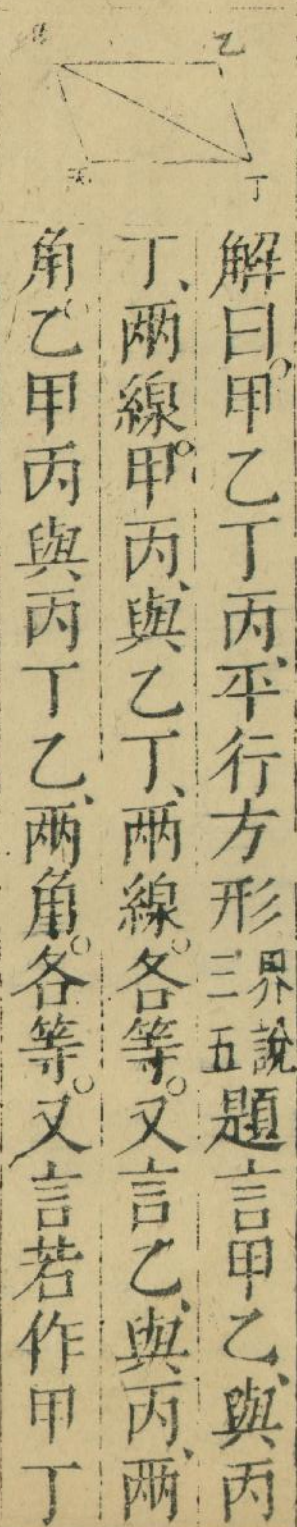 乙
丁
解曰。甲乙丁丙、平行方形界說三五題言甲乙、與丙
丁、兩線。甲丙、與乙丁、兩線。各等。又言乙、與丙、兩
角。乙甲丙與丙丁乙、兩角。各等。又言若作甲丁